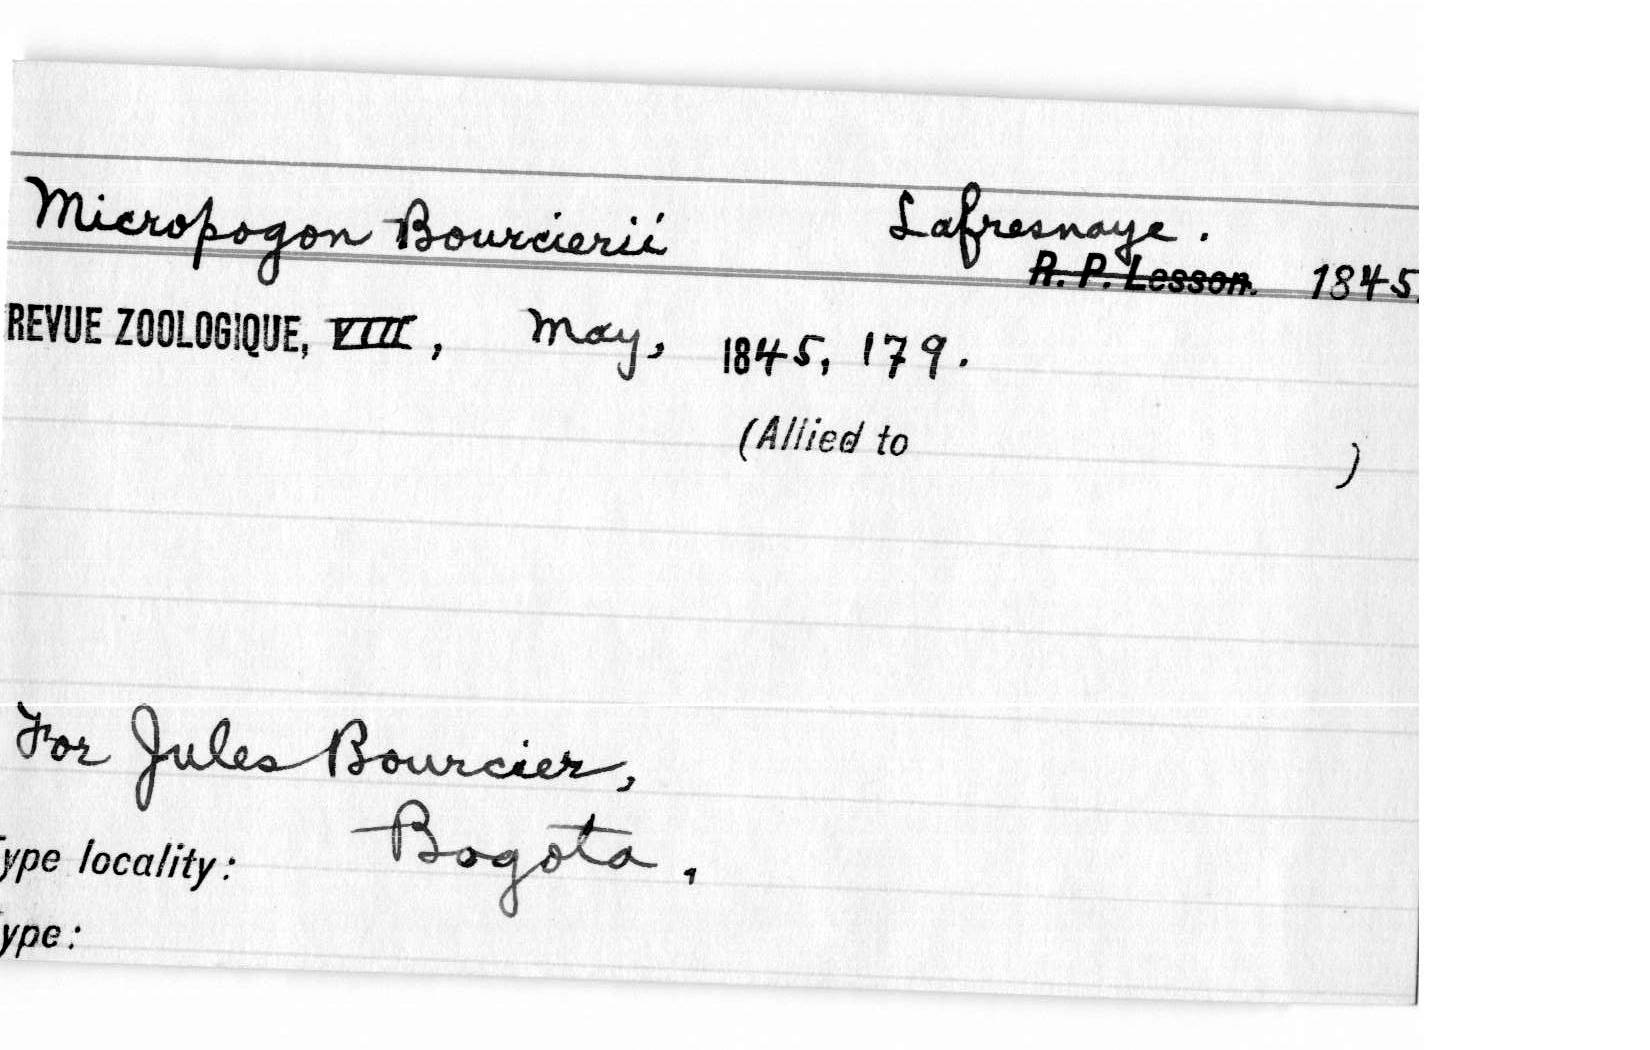 Micropogon Bourcierii Lafresnaye.
R. P. Lesson. 1845.
REVUE ZOOLOGIQUE, VIII, May, 1845, 179.
(Allied to )
For Jules Bourcier,
ype locality: Bogota.
ype: